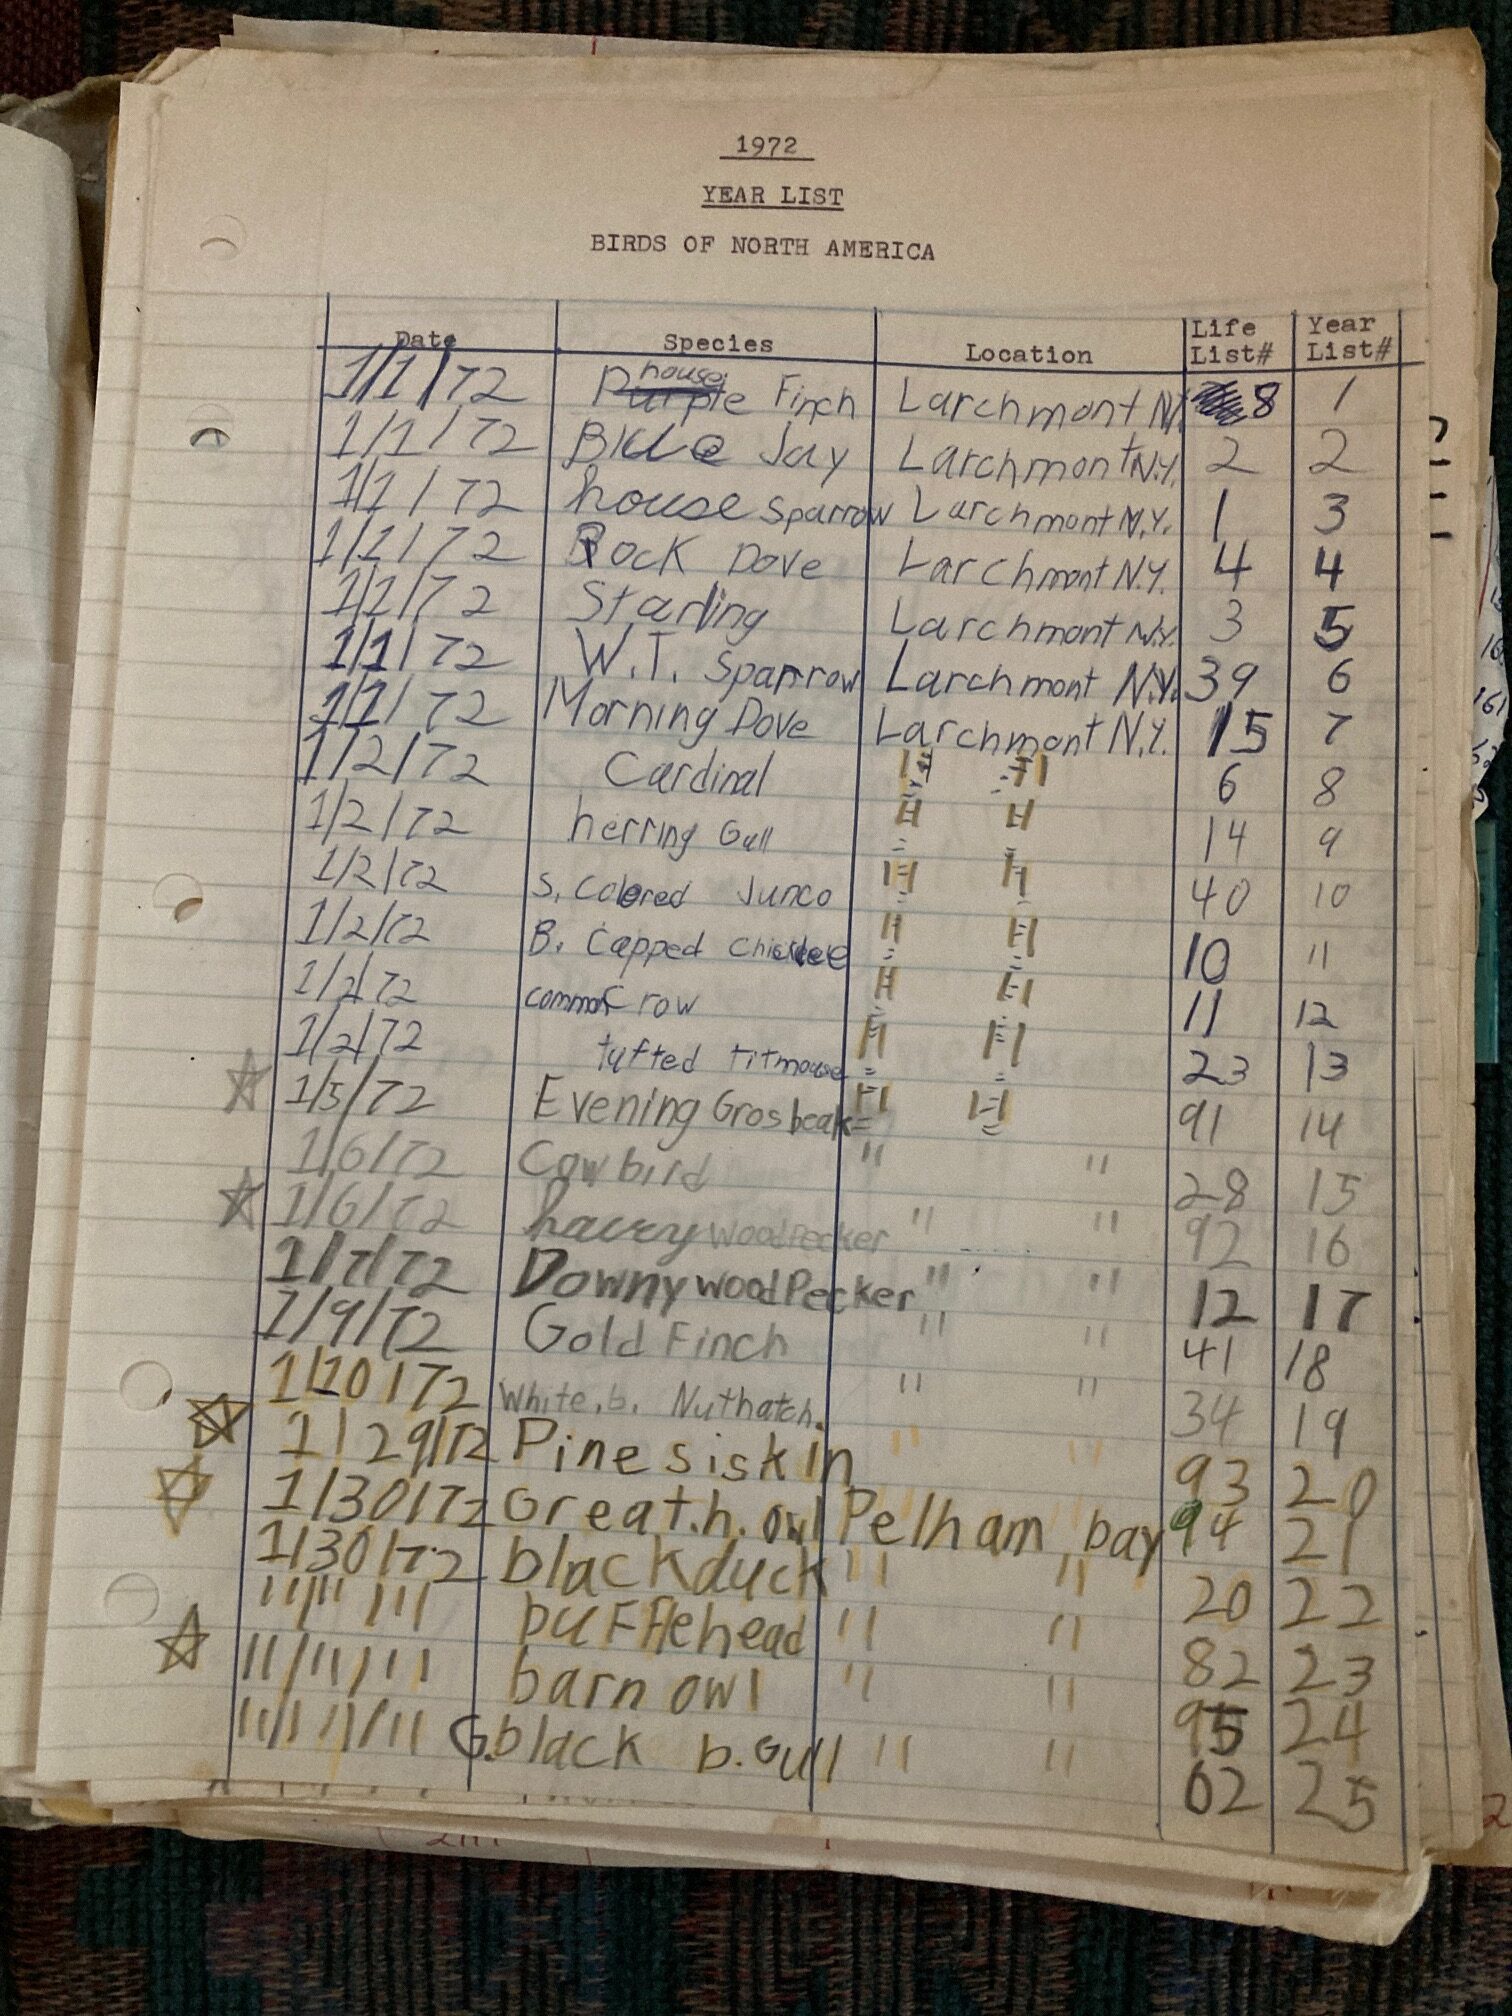 1972
YEAR LIST
BIRDS OF NORTH AMERICA
Date Species Location Life List# Year List#
1/1/72 Purple house Finch Larchmont N. 8 1
1/1/72 Blue Jay Larchmont N.Y. 2 2
1/1/72 house sparrow Larchmont N.Y. 1 3
1/1/72 Rock Dove Larchmont N.Y. 4 4
1/1/72 Starling Larchmont N.Y. 3 5
1/1/72 W.T. Sparrow Larchmont N.Y. 39 6
1/1/72 Morning Dove Larchmont N.Y. 15 7
1/2/72 Cardinal " " 6 8
1/2/72 herring Gull " " 14 9
1/2/72 S. Colored Junco " " 40 10
1/2/72 B. Capped Chickdee " " 10 11
1/2/72 common Crow " " 11 12
1/2/72 tufted titmouse " " 23 13
1/5/72 Evening Grosbeak " " 91 14
1/6/72 Cowbird " " 28 15
1/6/72 hairy woodpecker " " 92 16
1/7/72 Downy woodPecker " " 12 17
1/9/72 Gold Finch " " 41 18
1/10/72 White. b. Nuthatch. " " 34 19
1/29/72 Pine siskin " " 93 20
1/30/72 Great. h. owl Pelham bay 94 21
1/30/72 black duck " " 20 22
"/"/" bufflehead " " 82 23
"/"/" barn owl " " 95 24
"/"/" G. black b. Gull " " 62 25